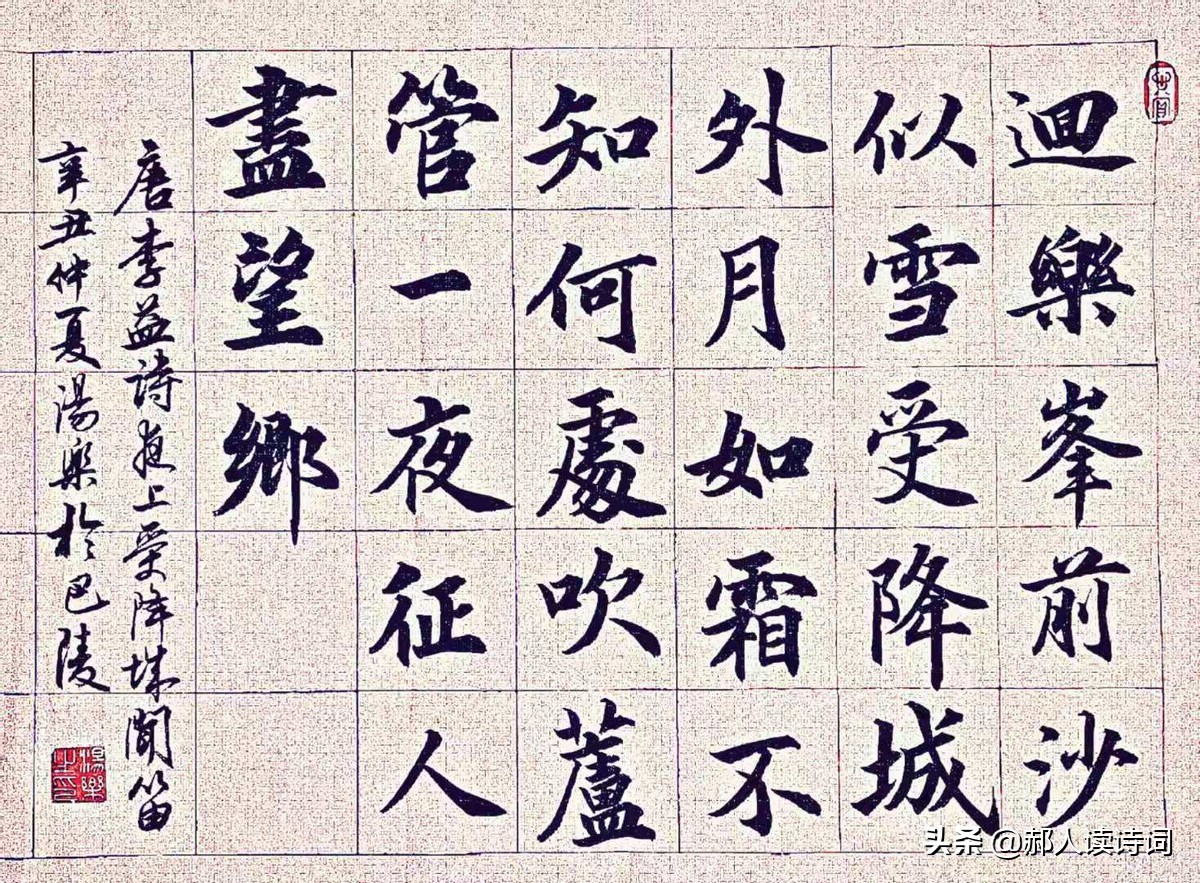 迴樂峯前沙
似雪受降城
外月如霜不
知何處吹蘆
管一夜征人
盡望鄉
唐李益詩夜上受降城聞笛
辛丑仲夏湯樂於巴陵
湯樂之印
头条 @郝人读诗词